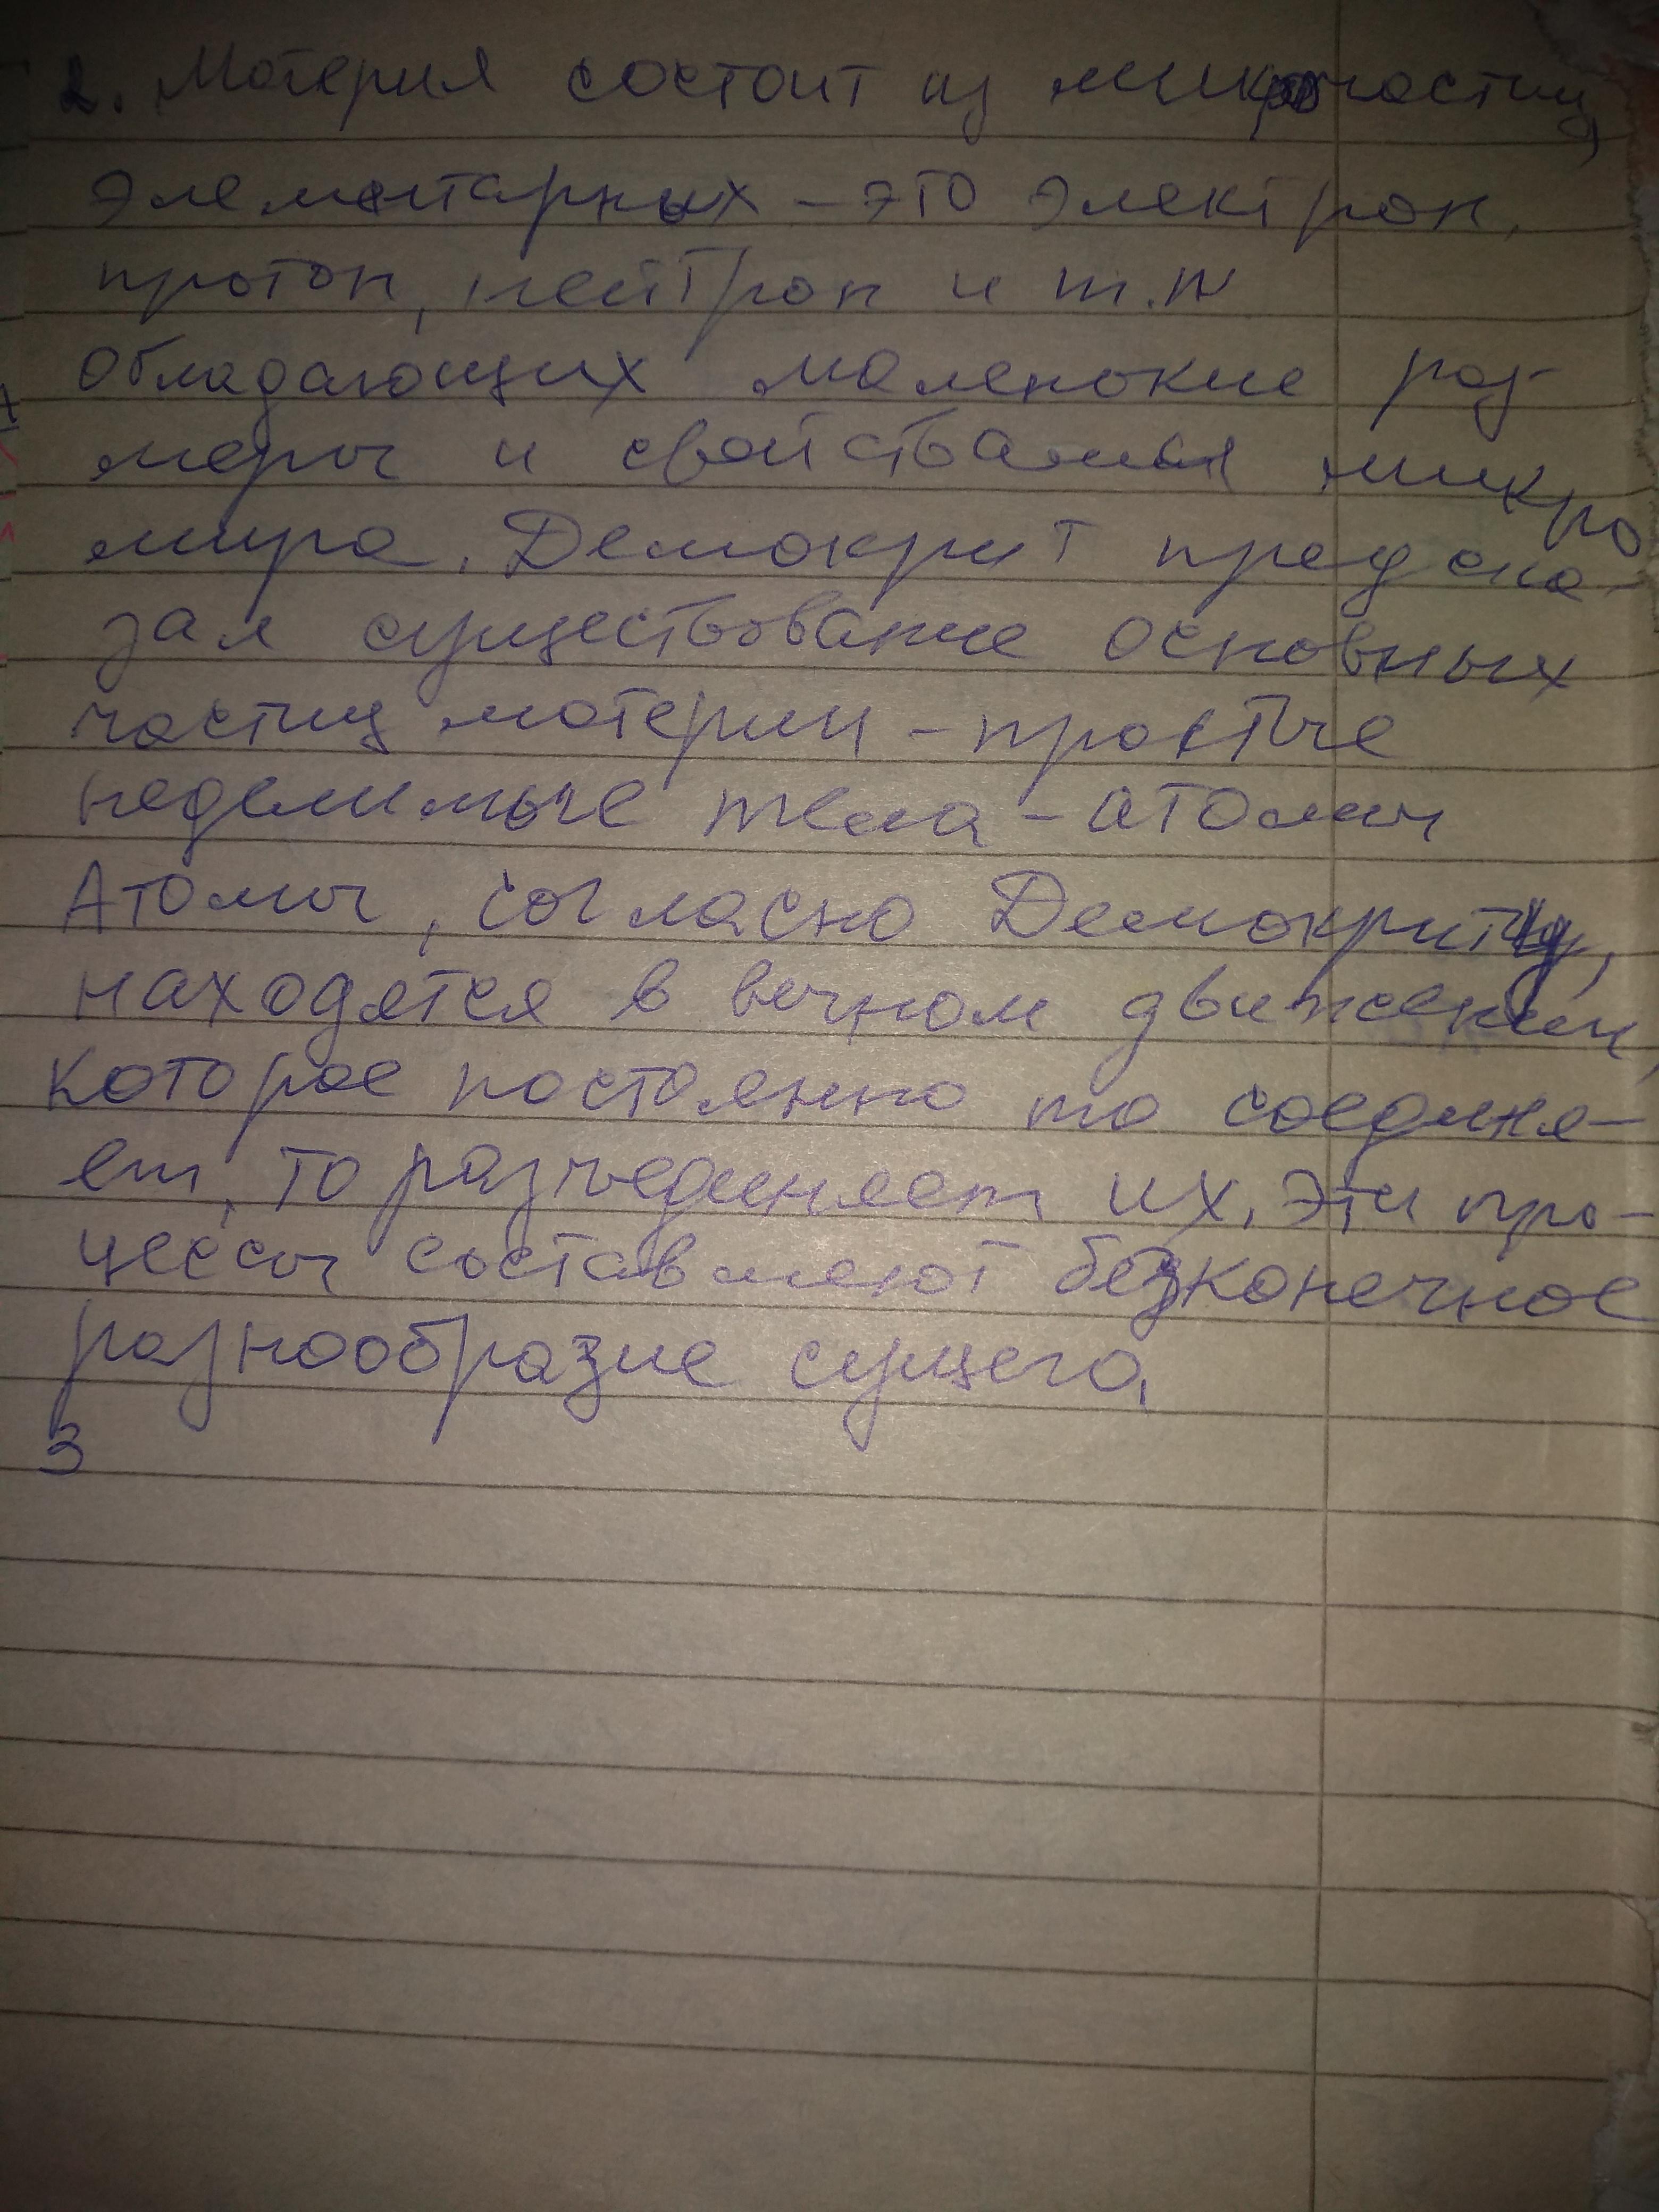 2. Материя состоит из микрочастиц,
элементарных - это электрон,
протон, нейтрон и т.п
обладающих маленькие раз-
меры и свойствами микро
мира. Демокрит предска-
зал существование основных
частиц материи - простые
неделимые тела - атомы
Атомы, согласно Демокриту,
находятся в вечном движении,
которое постоянно то соединя-
ет, то разъединяет их. Эти про-
цессы составляют безконечное
разнообразие сущего.
3